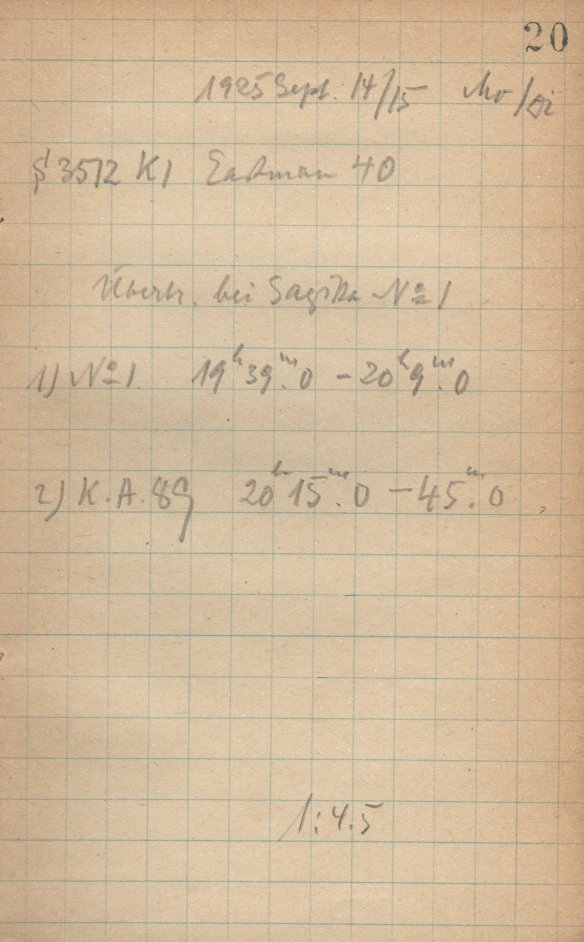 20
1925 Sept. 14/15 Mo/Di
§ 3512 K1 Eastman 40
Übertr. bei Sagitta № 1
1) № 1 19ʰ39ᵐ.0 – 20ʰ9ᵐ.0
2) K.A. 89 20ʰ15ᵐ.0 – 45ᵐ.0
1:4.5